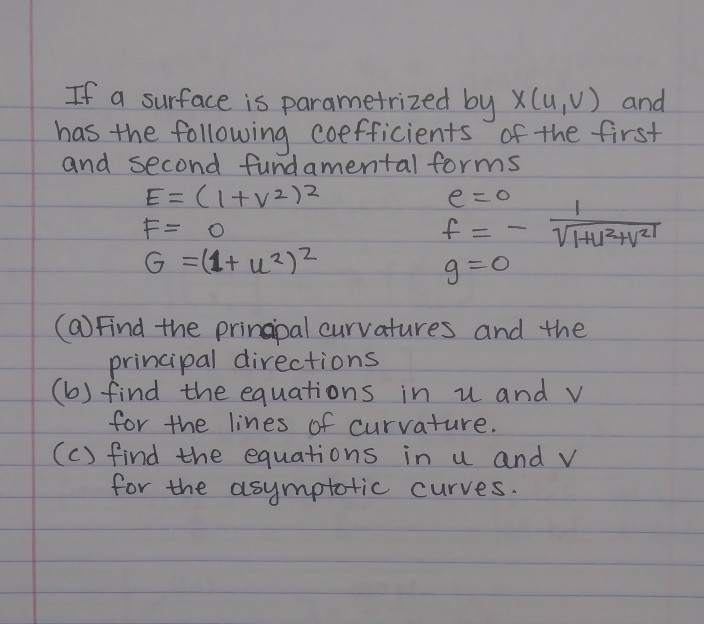 If a surface is parametrized by X(u,v) and
has the following coefficients of the first
and second fundamental forms
E = (1+v²)² e = 0
F = 0 f = - 1/√(1+u²+v²)
G = (1+u²)² g = 0
(a) Find the principal curvatures and the
principal directions
(b) find the equations in u and v
for the lines of curvature.
(c) find the equations in u and v
for the asymptotic curves.